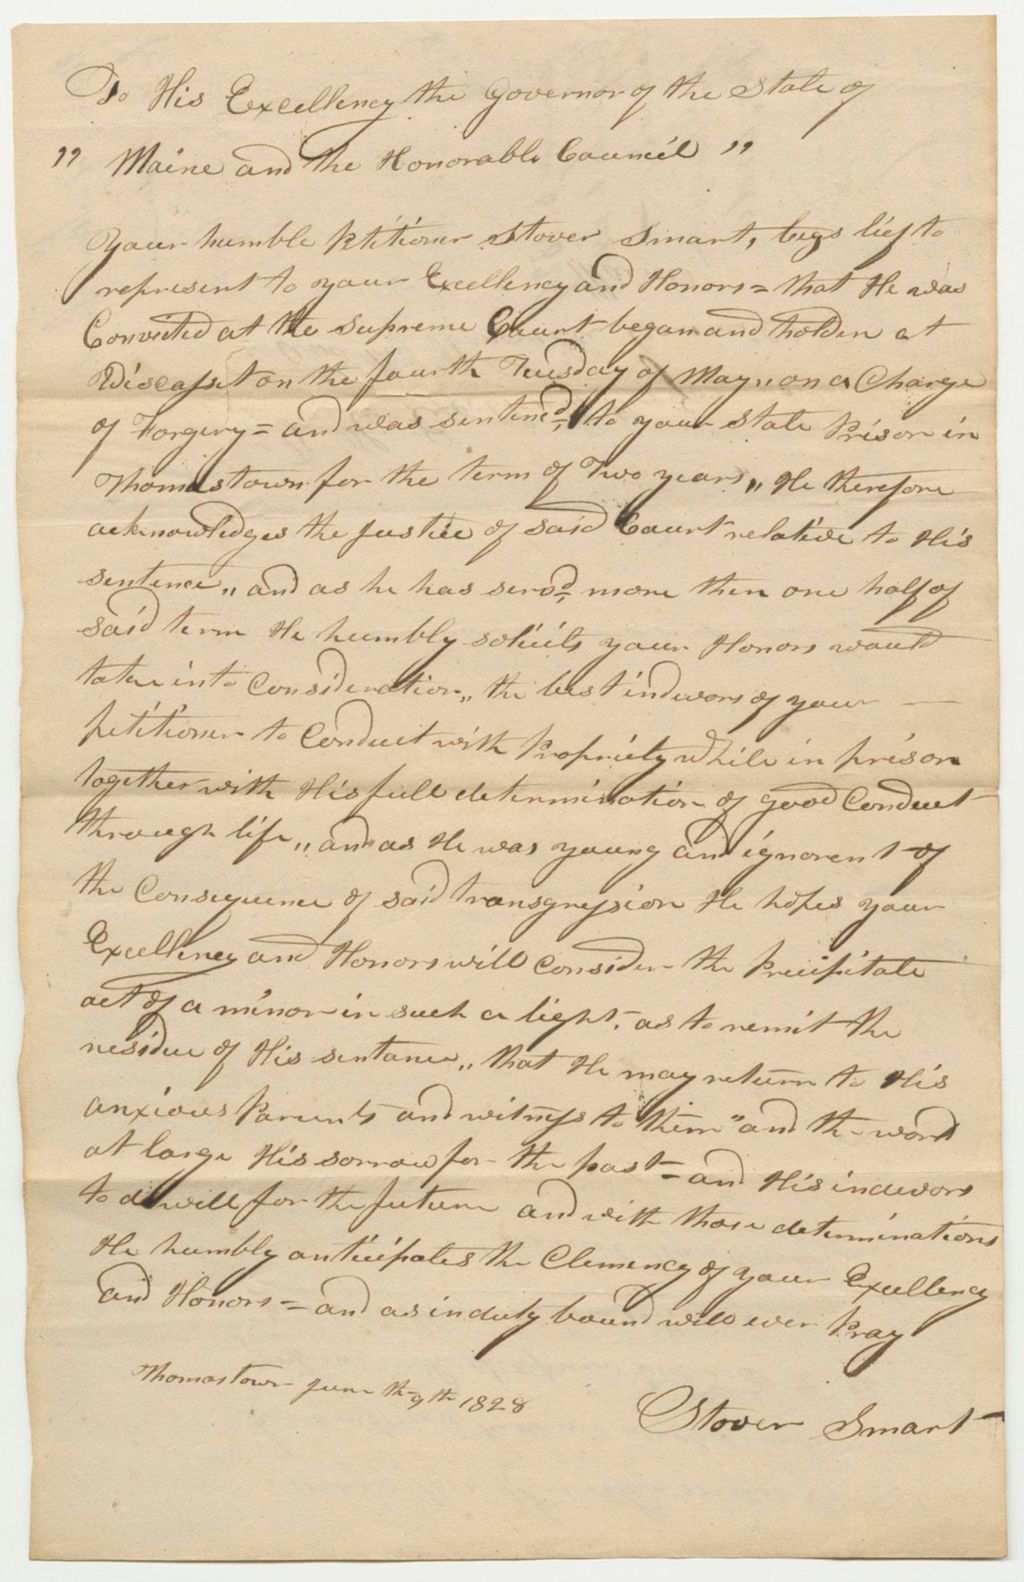 To His Excellency the Governor of the State of
" Maine and the Honorable Council "
Your humble petitioner Stover Smart, begs lief to
represent to your Excellency and Honors = that He was
Convicted at the Supreme Court began and holden at
Wiscasset on the fourth Tuesday of May,, on a Charge
of Forgery = and was sentencd, to your State Prison in
Thomastown for the term of Two years,, He therefore
acknowledges the justice of said Court relative to His
sentence,, and as he has servd, more then one half of
said term He humbly solicits your Honors would
take into Consideration,, the best indevors of your —
petitioner to Conduct with Propriety while in prison
together with His full determination of good Conduct
through life,, and as He was young and ignorent of
the Consequence of said transgression He hopes your
Excellency and Honors will Consider the Precipitate
act of a minor in such a light, as to remit the
residue of His sentance,, that He may return to His
anxious Parents and witness to them " and the word
at large His sorrow for the past = and His indevors
to do well for the future and with those determinations
He humbly anticipates the Clemency of your Excellency
and Honors = and as in duty bound will ever Pray
Thomastown June the 9th 1828
Stover Smart